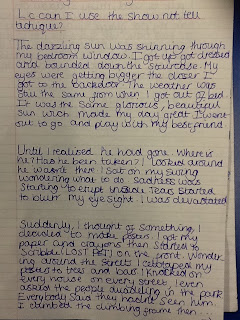 L.c can I use the show not tell
techique?
The dazzling sun was shinning through
my bedroom window. I got up got dressed
and bounded down the stairs. My
eyes were getting bigger the closer I
got to the backdoor. The weather was
the same from when I got out of bed
It was the same glorious, beautiful
sun wich made my day great I went
out to go and play with my best friend
Until I realised he had gone. Where is
he? Has he been taken? I looked around
he wasn't there. I sat on my swing
wondering what to do. Sadness was
starting to erupt inside. Tears started
to blur my eye sight. I was devastated
Suddenly, I thought of something, I
decided to make posters. I got my
paper and crayons then started to
scribble LOST PET! on the front. Wonder
ing around the streets I cellotaped my
posters to trees and bars. I knocked on
every house on every street, I even
asked the people in the park
Everybody said they hadn't seen him.
I climbed the climbing frame then